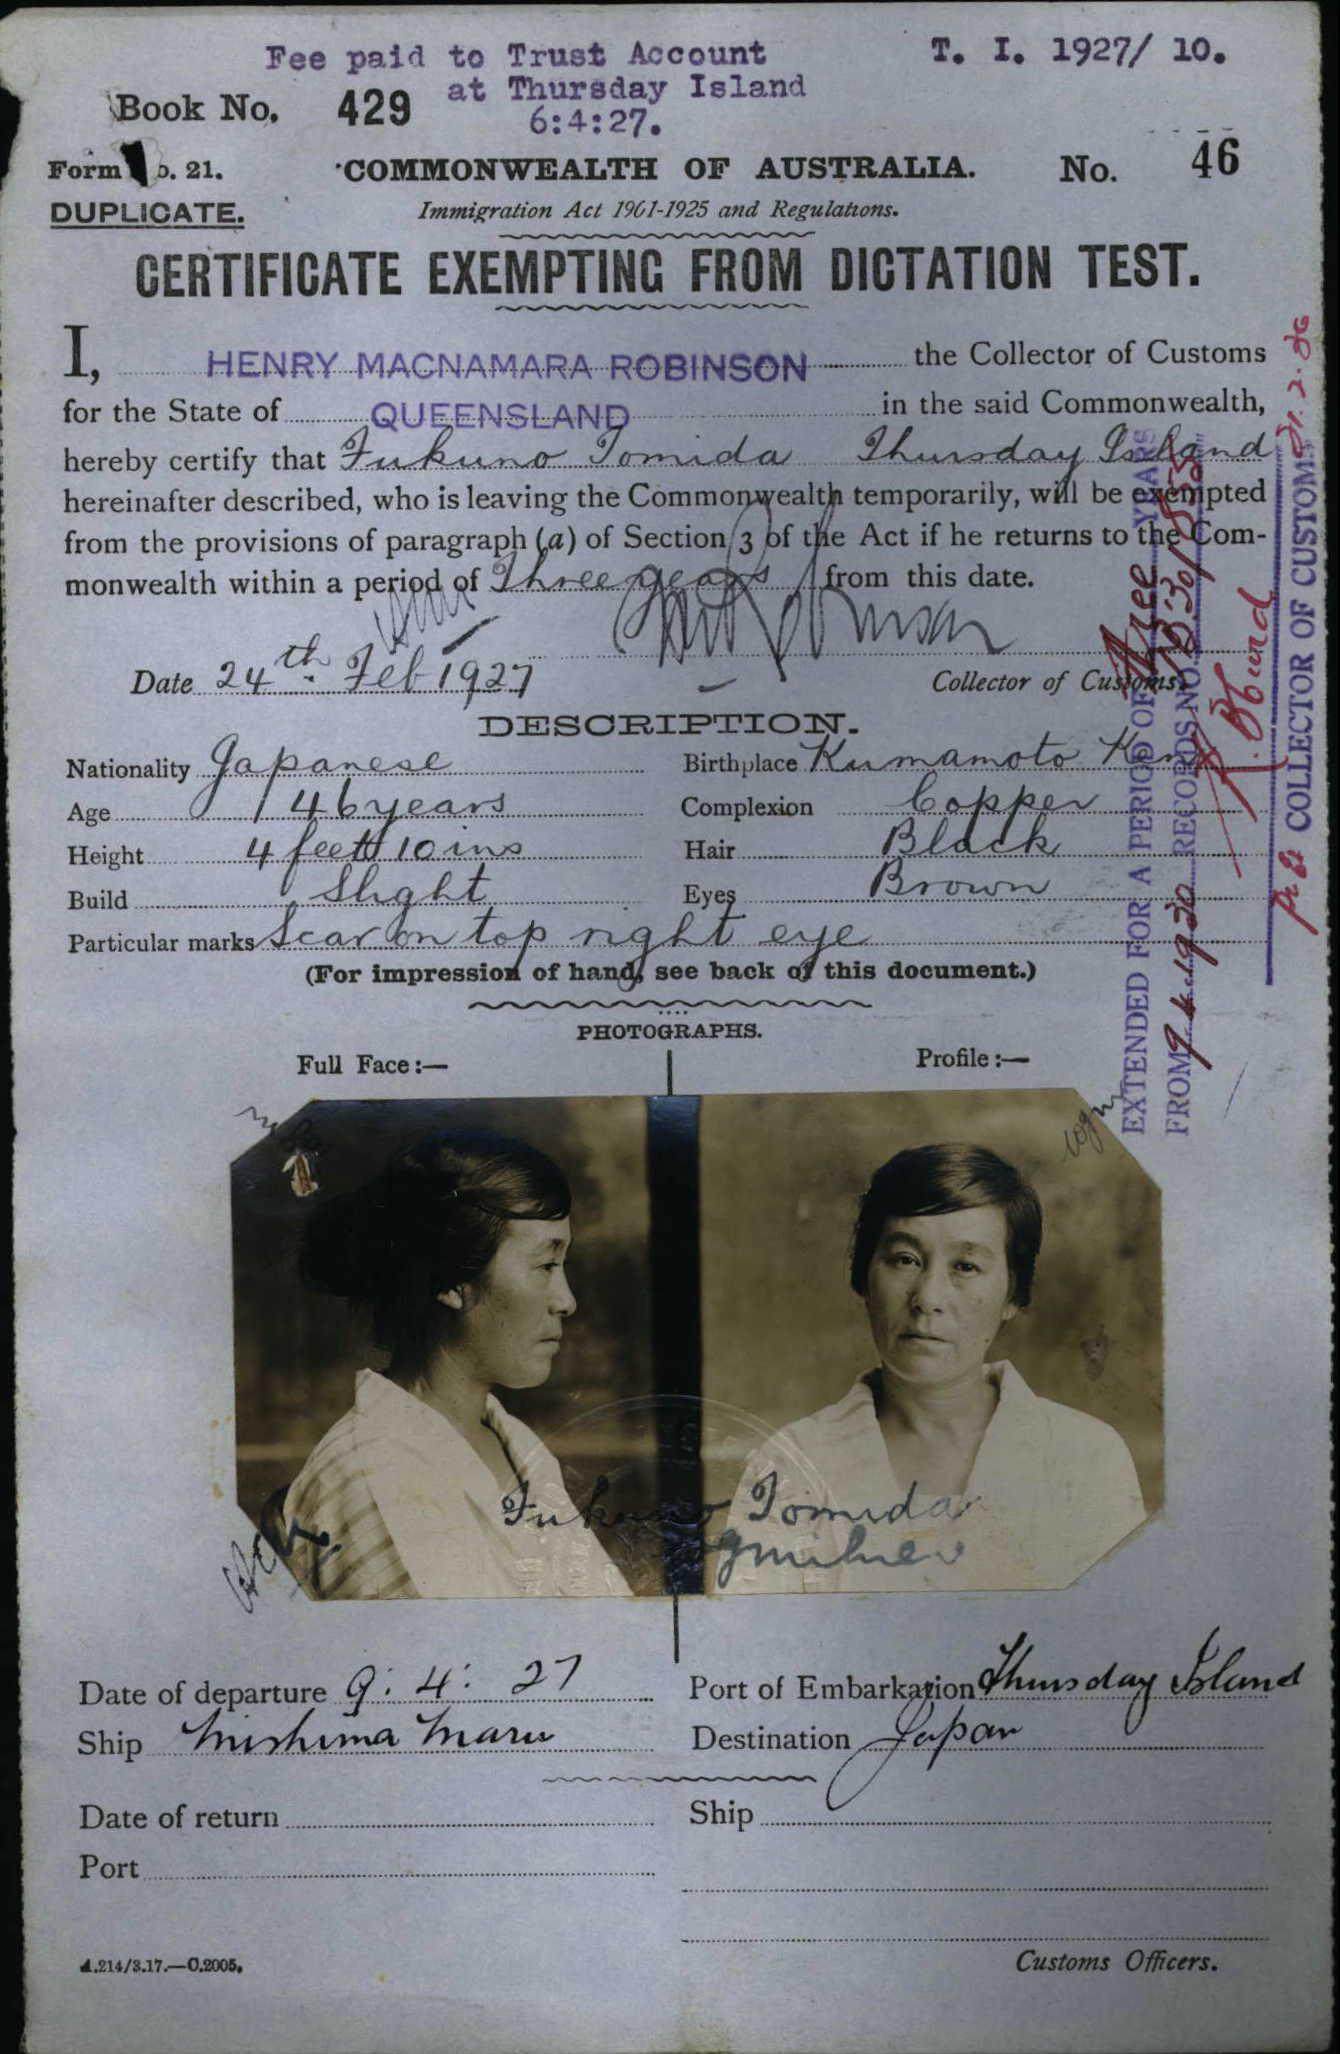 Fee paid to Trust Account
at Thursday Island
6:4:27.
T. I. 1927/ 10.
Book No. 429
Form No. 21.
COMMONWEALTH OF AUSTRALIA.
No. 46
DUPLICATE.
Immigration Act 1901-1925 and Regulations.
CERTIFICATE EXEMPTING FROM DICTATION TEST.
I, HENRY MACNAMARA ROBINSON the Collector of Customs
for the State of QUEENSLAND in the said Commonwealth,
hereby certify that Fukuno Tomida Thursday Island
hereinafter described, who is leaving the Commonwealth temporarily, will be exempted
from the provisions of paragraph (a) of Section 3 of the Act if he returns to the Com-
monwealth within a period of Three years from this date.
Date 24th. Feb 1927
Collector of Customs.
DESCRIPTION.
Nationality Japanese
Birthplace Kumamoto Ken
Age 46 years
Complexion Copper
Height 4 feet 10 ins
Hair Black
Build Slight
Eyes Brown
Particular marks Scar on top right eye
(For impression of hand, see back of this document.)
PHOTOGRAPHS.
Full Face:—
Profile:—
Fukuno Tomida
Date of departure 9: 4: 27
Port of Embarkation Thursday Island
Ship Mishima Maru
Destination Japan
Date of return
Ship
Port
A.214/3.17.—C.2005.
Customs Officers.
EXTENDED FOR A PERIOD OF three YEARS
FROM 9.4.1930 RECORDS NO.
COLLECTOR OF CUSTOMS